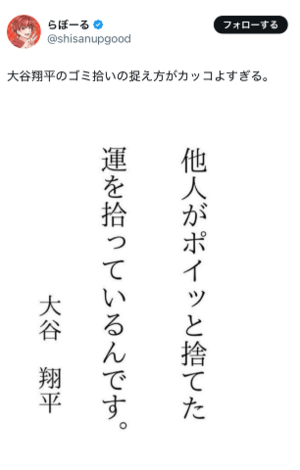 らぼーる
@shisanupgood
フォローする
大谷翔平のゴミ拾いの捉え方がカッコよすぎる。
他人がポイッと捨てた
運を拾っているんです。
大谷 翔平